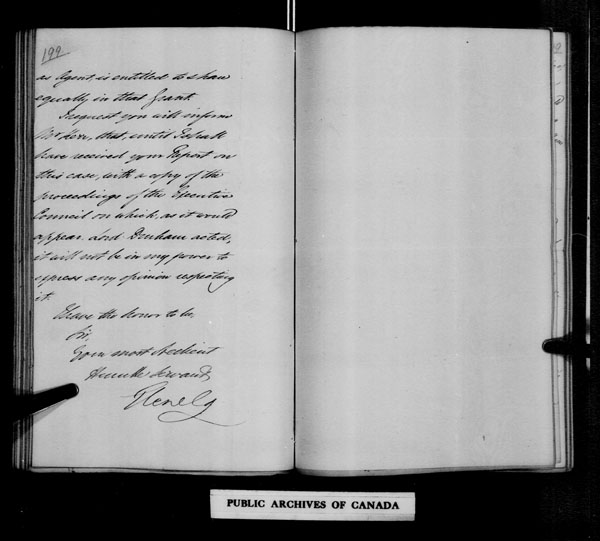 199
as Agent, is entitled to share
equally in that Grant.
I request you will inform
Mr Kerr, that, until I shall
have received your Report on
this case, with a copy of the
proceedings of the Executive
Council on which, as it would
appear Lord Durham acted,
it will not be in my power to
express any opinion respecting
it.
I have the honor to be,
Sir,
Your most obedient
Humble Servant,
Glenelg
PUBLIC ARCHIVES OF CANADA